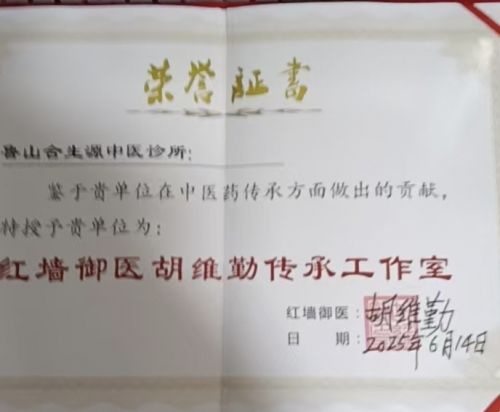 荣誉证书
鲁山合生源中医诊所：
鉴于贵单位在中医药传承方面做出的贡献，
特授予贵单位为：
红墙御医胡维勤传承工作室
红墙御医：胡维勤
日 期：2025年6月14日